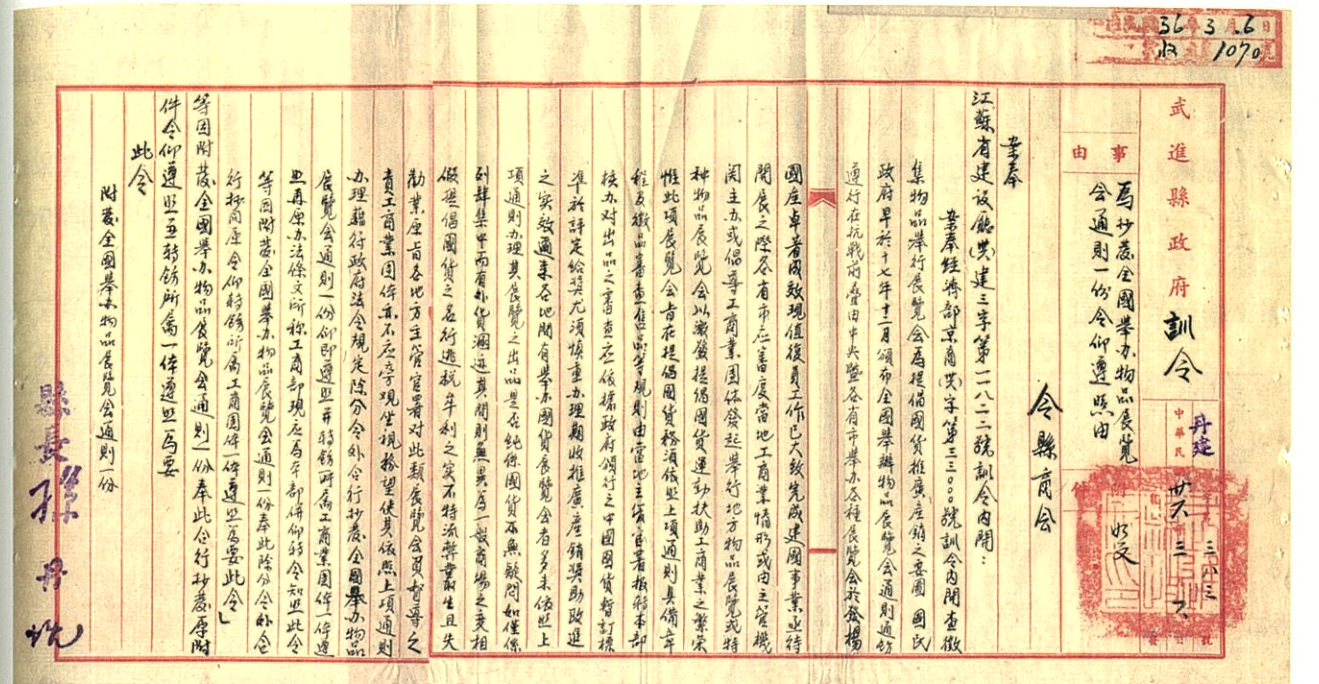 36 3 6
收 1070
武進縣政府訓令
丹建
中華民國 卅六 三 六
事由
爲抄發全國舉办物品展覽
會通則一份令仰遵照由
如文
令縣商會
案奉
江蘇省建設廳(卅六)建三字第一一八二二號訓令內開：
案奉經濟部京商(卅六)字第三三〇〇〇號訓令內開查徵
集物品舉行展覽會爲提倡國貨推廣產銷之要圖 國民
政府早於十七年十二月頒布全國舉辦物品展覽會通則通飭
遵行在抗戰前叠由中央暨各省市舉办各種展覽會於發揚
國產卓著成效現值復員工作已大致完成建國事業亟待
開展之際各省市应審度當地工商業情形或由主管機
関主办或倡導工商業團体發起舉行地方物品展覽或特
种物品展覽會以激發提倡國貨運動扶助工商業之繁榮
惟此項展覽會旨在提倡國貨務須依照上項通則具備章
程及徵品審查售品等規則由當地主管官署报轉本部
核办对出品之審查应依據政府頒行之中國國貨暫訂標
準於評定給獎尤須慎重办理期收推廣產銷獎助改進
之实效過來各地間有舉办國貨展覽會者多未依照上
項通則办理其展覽之出品是否純係國貨不無疑問如僅係
列肆集中而有外貨混迹其間則無異爲一般商場之变相
假提倡國貨之名行逃税牟利之实不特流弊叢生且失
勸業原旨各地方主管官署对此類展覽會負督導之
責工商業團体亦不应旁观坐視務望使其依照上項通則
办理藉符政府法令規定除分令外合行抄發全國舉办物品
展覽會通則一份仰即遵照并轉飭所属工商業團体一体遵
照再原办法條文所称工商部現应爲本部併仰轉令知照此令
等因附發全國舉办物品展覽會通則一份奉此除分令外合
行抄同原令仰轉飭所属工商團体一体遵照爲要此令」
等因附發全國舉办物品展覽會通則一份奉此合行抄發原附
件令仰遵照並轉飭所属一体遵照爲要
此令
附發全國舉办物品展覽會通則一份
縣長